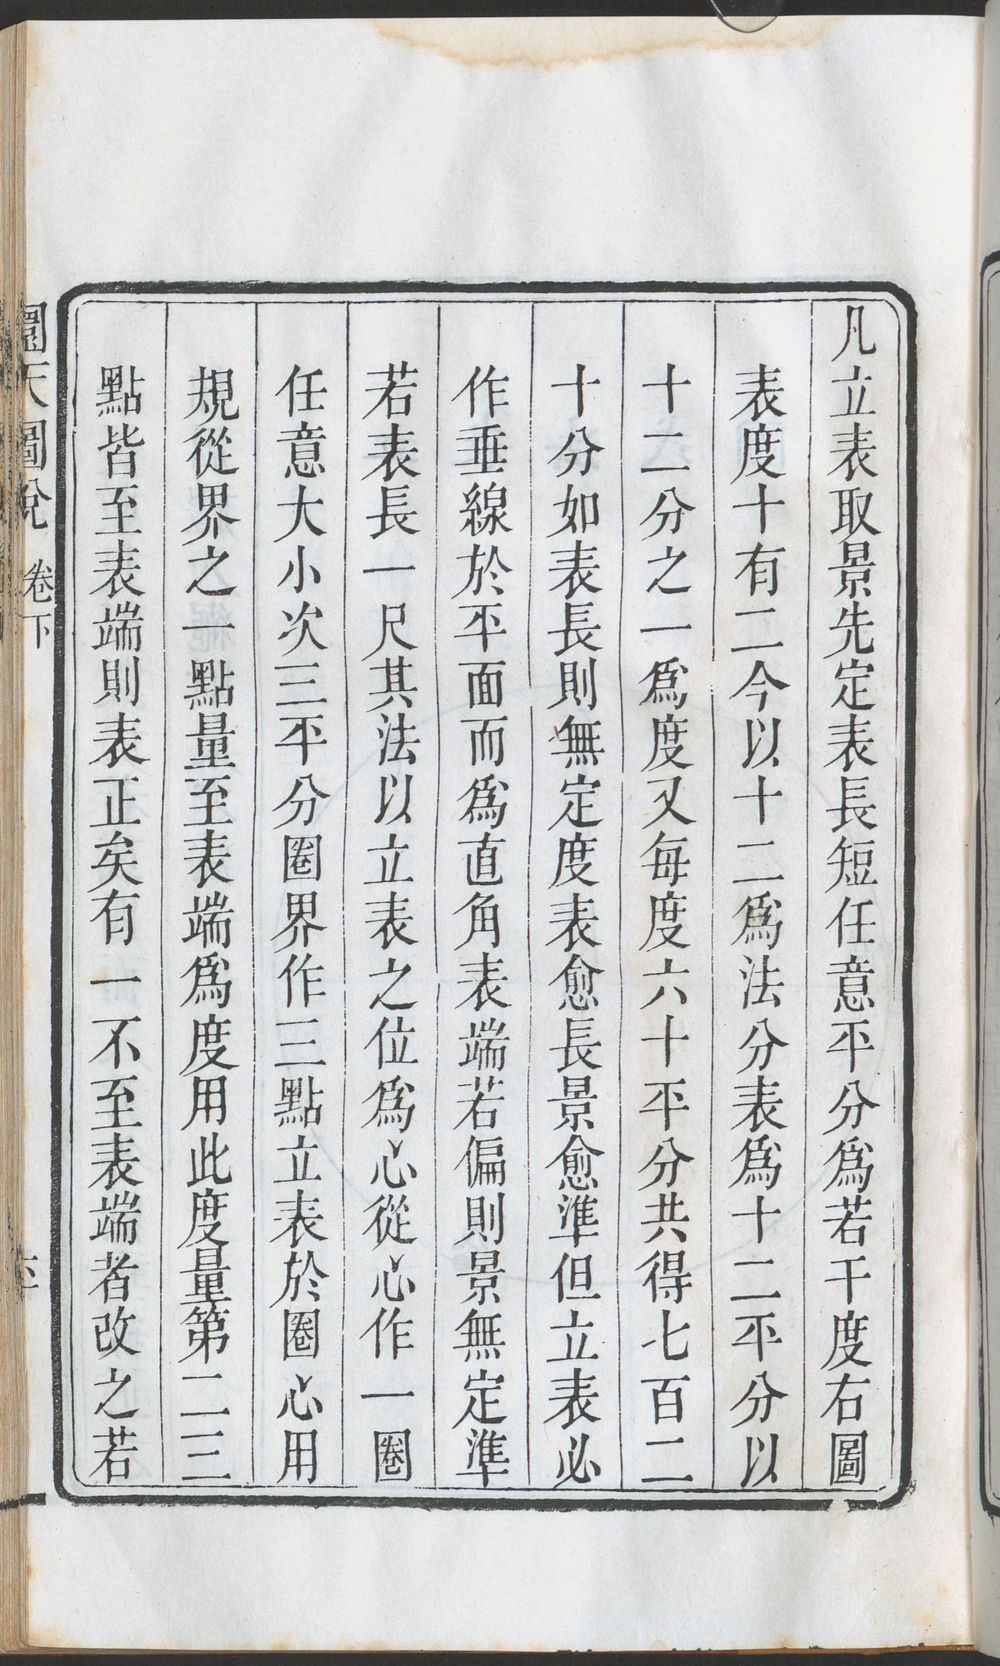 凡立表取景先定表長短任意平分爲若干度右圖
表度十有二今以十二爲法分表爲十二平分以
十二分之一爲度又每度六十平分共得七百二
十分如表長則無定度表愈長景愈準但立表必
作垂線於平面而爲直角表端若偏則景無定準
若表長一尺其法以立表之位爲心從心作一圈
任意大小次三平分圈界作三點立表於圈心用
規從界之一點量至表端爲度用此度量第二三
點皆至表端則表正矣有一不至表端者改之若
圜天圖說 卷下